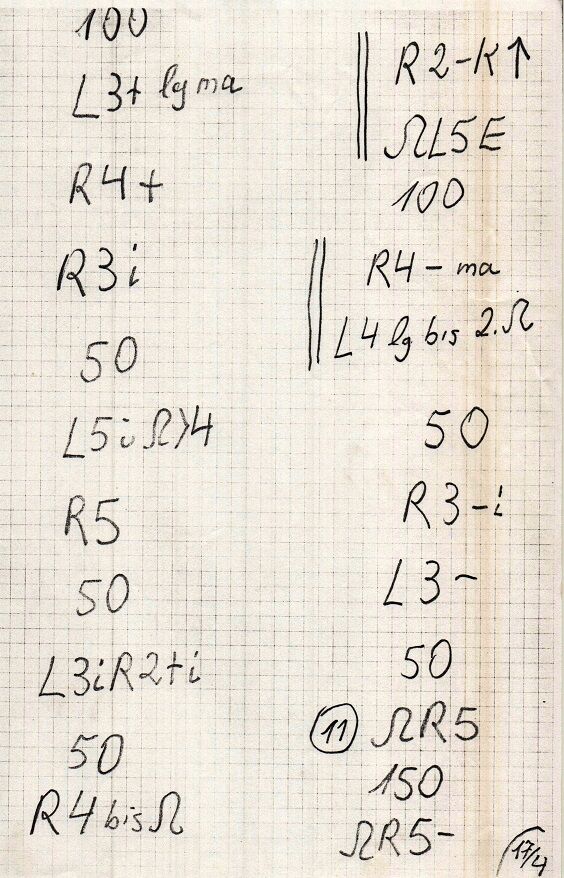 100
L3+ lg ma
R4+
R3i
50
L5iΩ>4
R5
50
L3iR2+i
50
R4bisΩ
R2-K↑
ΩL5E
100
R4-ma
L4 lg bis 2.Ω
50
R3-i
L3-
50
11 ΩR5
150
ΩR5-
17/4